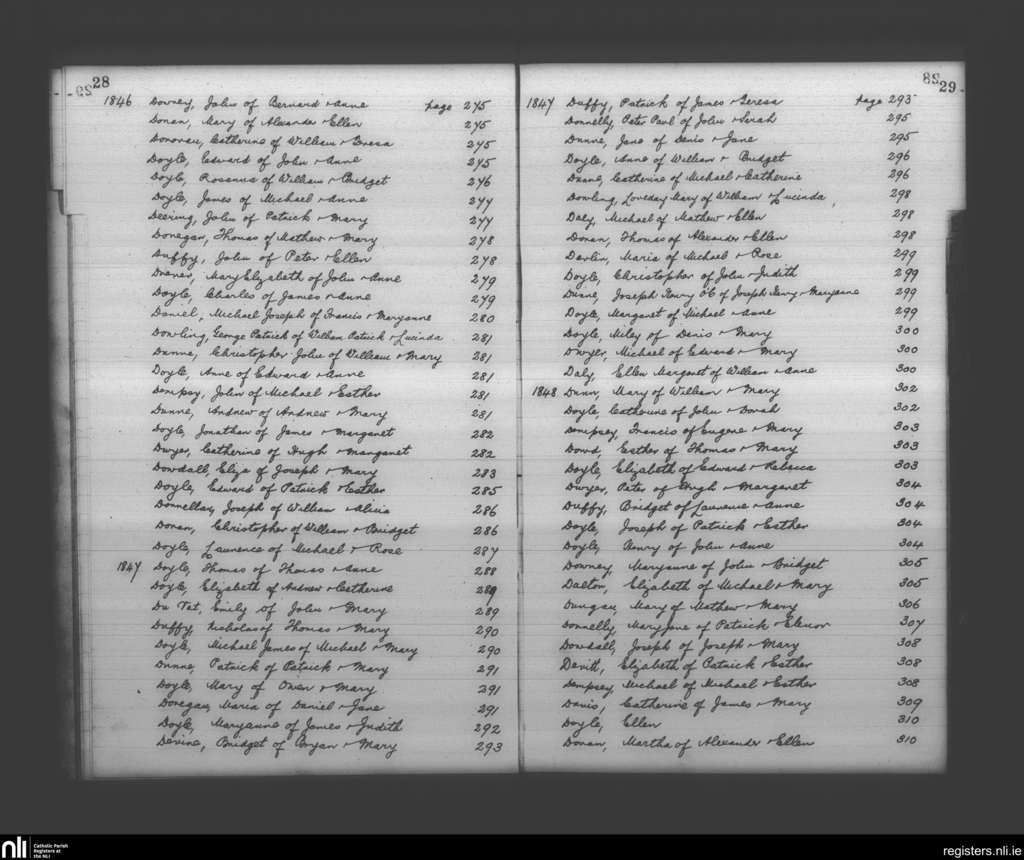 28
1846 Downey, John of Bernard & Anne page 275
Donan, Mary of Alexander & Ellen 275
Donovan, Catherine of William & Teresa 275
Doyle, Edward of John & Anne 275
Doyle, Rosanna of William & Bridget 276
Doyle, James of Michael & Anne 277
Deering, John of Patrick & Mary 277
Donegan, Thomas of Mathew & Mary 278
Duffy, John of Peter & Ellen 278
MaryElizabeth of John & Anne 279
Doyle, Charles of James & Anne 279
Daniel, Michael Joseph of Francis & Maryanne 280
Dowling, George Patrick of William Patrick & Lucinda 281
Dunne, Christopher John of William & Mary 281
Doyle, Anne of Edward & Anne 281
Dempsey, John of Michael & Esther 281
Dunne, Andrew of Andrew & Mary 281
Doyle, Jonathan of James & Margaret 282
Dwyer, Catherine of Hugh & Margaret 282
Dowdall, Eliza of Joseph & Mary 283
Doyle, Edward of Patrick & Esther 285
Donnellan, Joseph of William & Alicia 286
Donan, Christopher of William & Bridget 286
Doyle, Laurence of Michael & Rose 287
1847 Doyle, Thomas of Thomas & Anne 288
Doyle, Elizabeth of Andrew & Catherine 289
Du Tat, Emily of John & Mary 289
Duffy, Nicholas of Thomas & Mary 290
Doyle, Michael James of Michael & Mary 290
Dunne, Patrick of Patrick & Mary 291
Doyle, Mary of Owen & Mary 291
Donegan, Maria of Daniel & Jane 291
Doyle, Maryanne of James & Judith 292
Devine, Bridget of Bryan & Mary 293
29
1847 Duffy, Patrick of James & Teresa page 293
Donnelly, Peter Paul of John & Sarah 295
Dunne, Jane of Denis & Jane 295
Doyle, Anne of William & Bridget 296
Duane, Catherine of Michael & Catherine 296
Dowling, Loveday Mary of William & Lucinda 298
Daly, Michael of Mathew & Ellen 298
Donan, Thomas of Alexander & Ellen 298
Devlin, Maria of Michael & Rose 299
Doyle, Christopher of John & Judith 299
Duane, Joseph Henry of Joseph Henry & Maryanne 299
Doyle, Margaret of Michael & Anne 299
Doyle, Miley of Denis & Mary 300
Dwyer, Michael of Edward & Mary 300
Daly, Ellen Margaret of William & Anne 300
1848 Dunn, Mary of William & Mary 302
Doyle, Catherine of John & Dorah 302
Dempsey, Francis of Eugene & Mary 303
Dowd, Esther of Thomas & Mary 303
Doyle, Elizabeth of Edward & Rebecca 303
Dwyer, Peter of Hugh & Margaret 304
Duffy, Bridget of Laurence & Anne 304
Doyle, Joseph of Patrick & Esther 304
Doyle, Henry of John & Anne 304
Downey, Maryanne of John & Bridget 305
Dalton, Elizabeth of Michael & Mary 305
Dungan, Mary of Mathew & Mary 306
Donnelly, Maryjane of Patrick & Elenor 307
Dowdall, Joseph of Joseph & Mary 308
Devitt, Elizabeth of Patrick & Esther 308
Dempsey, Michael of Michael & Esther 308
Davis, Catherine of James & Mary 309
Doyle, Ellen 310
Donan, Martha of Alexander & Ellen 310
nli Catholic Parish Registers at the NLI
registers.nli.ie